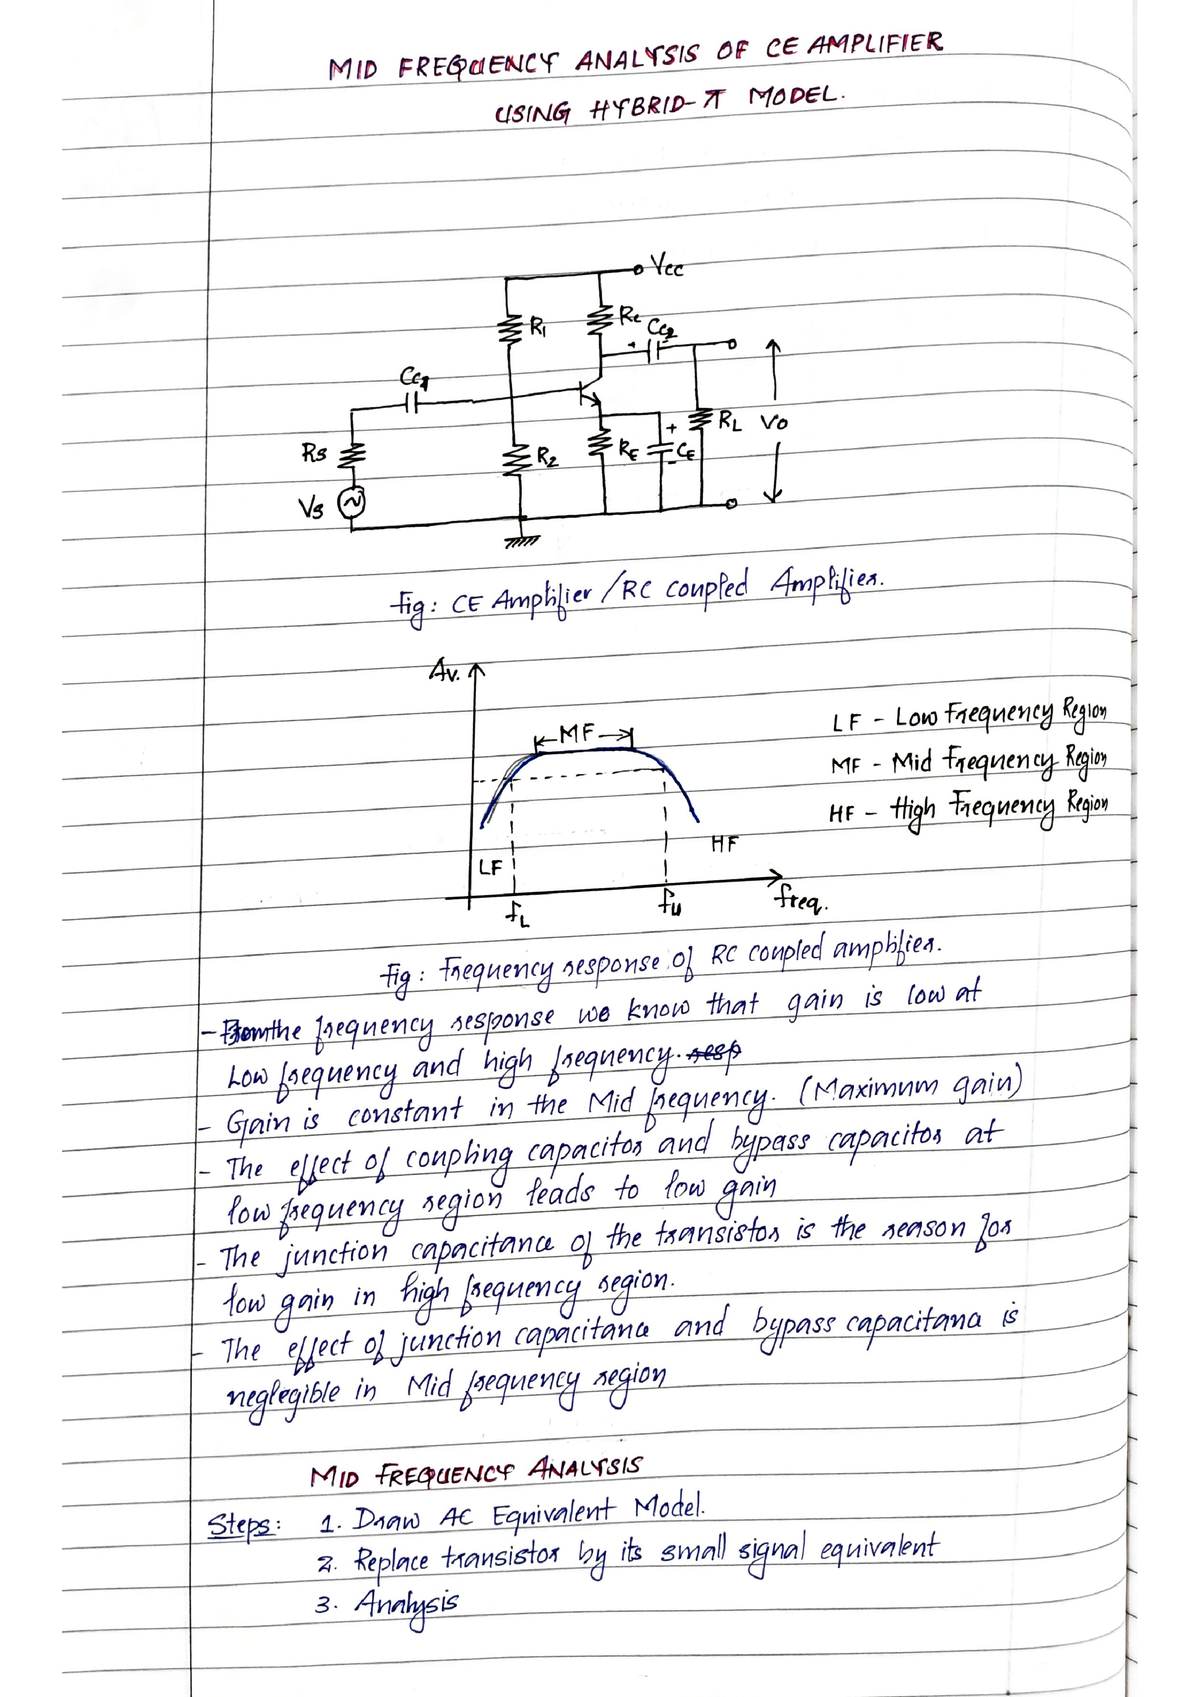 MID FREQUENCY ANALYSIS OF CE AMPLIFIER
USING HYBRID-π MODEL.
Vcc
R1
Rc
Cc2
Cc1
RL
Vo
Rs
R2
RE
+
-
CE
Vs
fig: CE Amplifier /RC coupled Amplifier.
Av.
MF
LF - Low Frequency Region
MF - Mid Frequency Region
HF - High Frequency Region
HF
LF
fL
fu
freq.
fig: Frequency response of RC coupled amplifier.
- From the frequency response we know that gain is low at
Low frequency and high frequency. resp
- Gain is constant in the Mid frequency. (Maximum gain)
- The effect of coupling capacitor and bypass capacitor at
low frequency region leads to low gain
- The junction capacitance of the transistor is the reason for
low gain in high frequency region.
- The effect of junction capacitance and bypass capacitance is
neglegible in Mid frequency region
MID FREQUENCY ANALYSIS
Steps: 1. Draw AC Equivalent Model.
2. Replace transistor by its small signal equivalent
3. Analysis